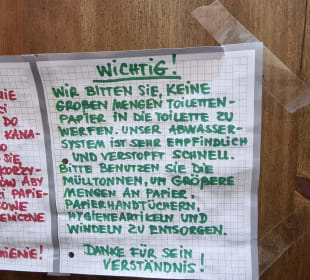 WICHTIG!
WIR BITTEN SIE, KEINE
GROBEN MENGEN TOILETTEN-
PAPIER IN DIE TOILETTE ZU
WERFEN. UNSER ABWASSER-
SYSTEM IST SEHR EMPFINDLICH
UND VERSTOPFT SCHNELL.
BITTE BENUTZEN SIE DIE
MÜLLTONNEN, UM GRÖBERE
MENGEN AN PAPIER,
PAPIERHANDTÜCHERN,
HYGIENEARTIKELN UND
WINDELN ZU ENTSORGEN.
DANKE FÜR SEIN
VERSTÄNDNIS!